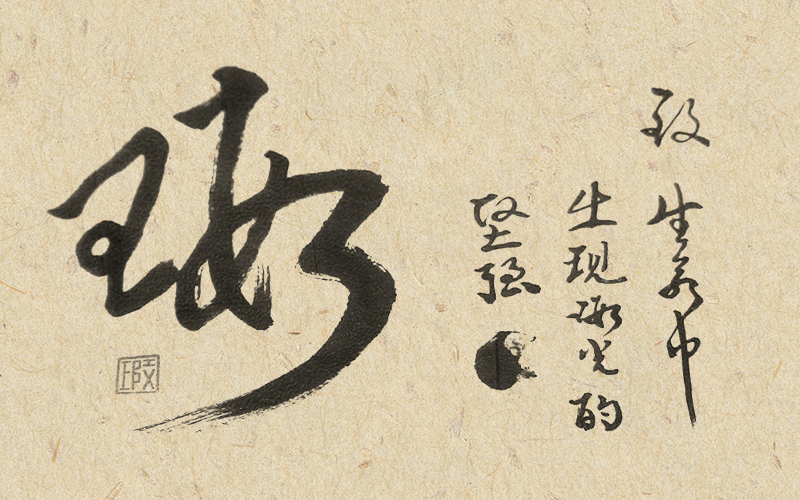 致生命中
出现瑕光的
坚强
瑕
瑕